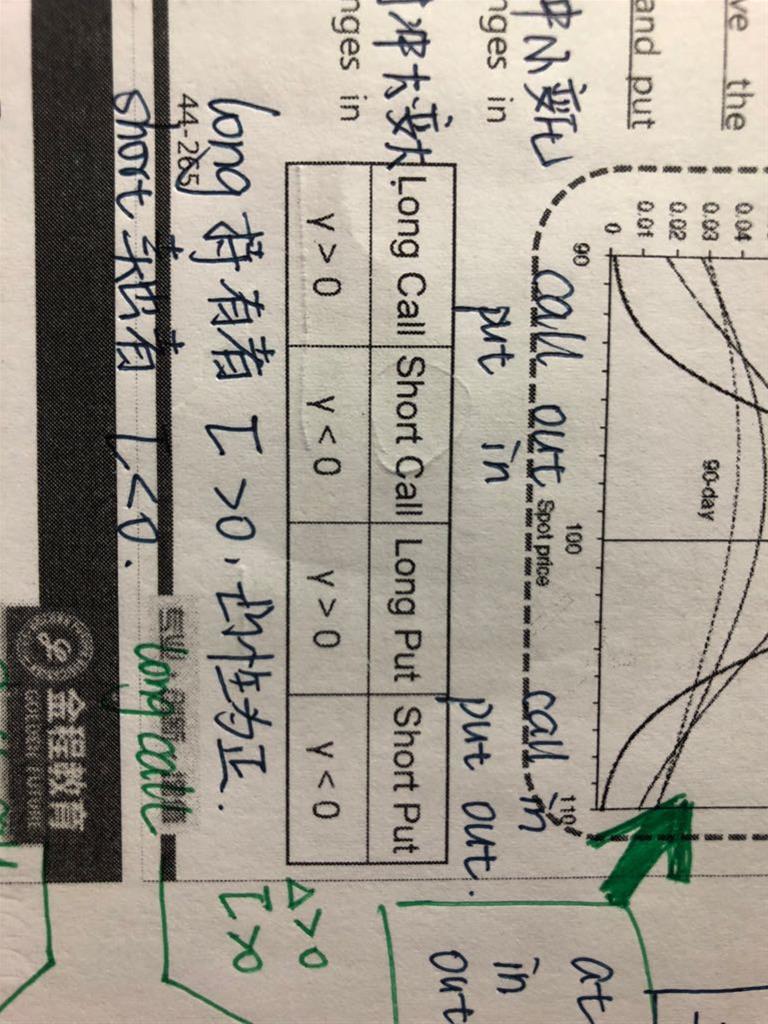 ve the
and put
中小变化
nges in
冲大变大.
nges in
0.04
0.03
0.02
0.01
0
90
100
110
90-day
Spot price
call out
call in
put in
put out.
Long Call Short Call Long Put Short Put
γ > 0 γ < 0 γ > 0 γ < 0
long 持有者 Γ >0, 凸性为正.
44-265
short 卖出者 Γ<0.
long call
金程教育
GOLDEN FUTURE
Δ>0
Γ>0
at
in
out